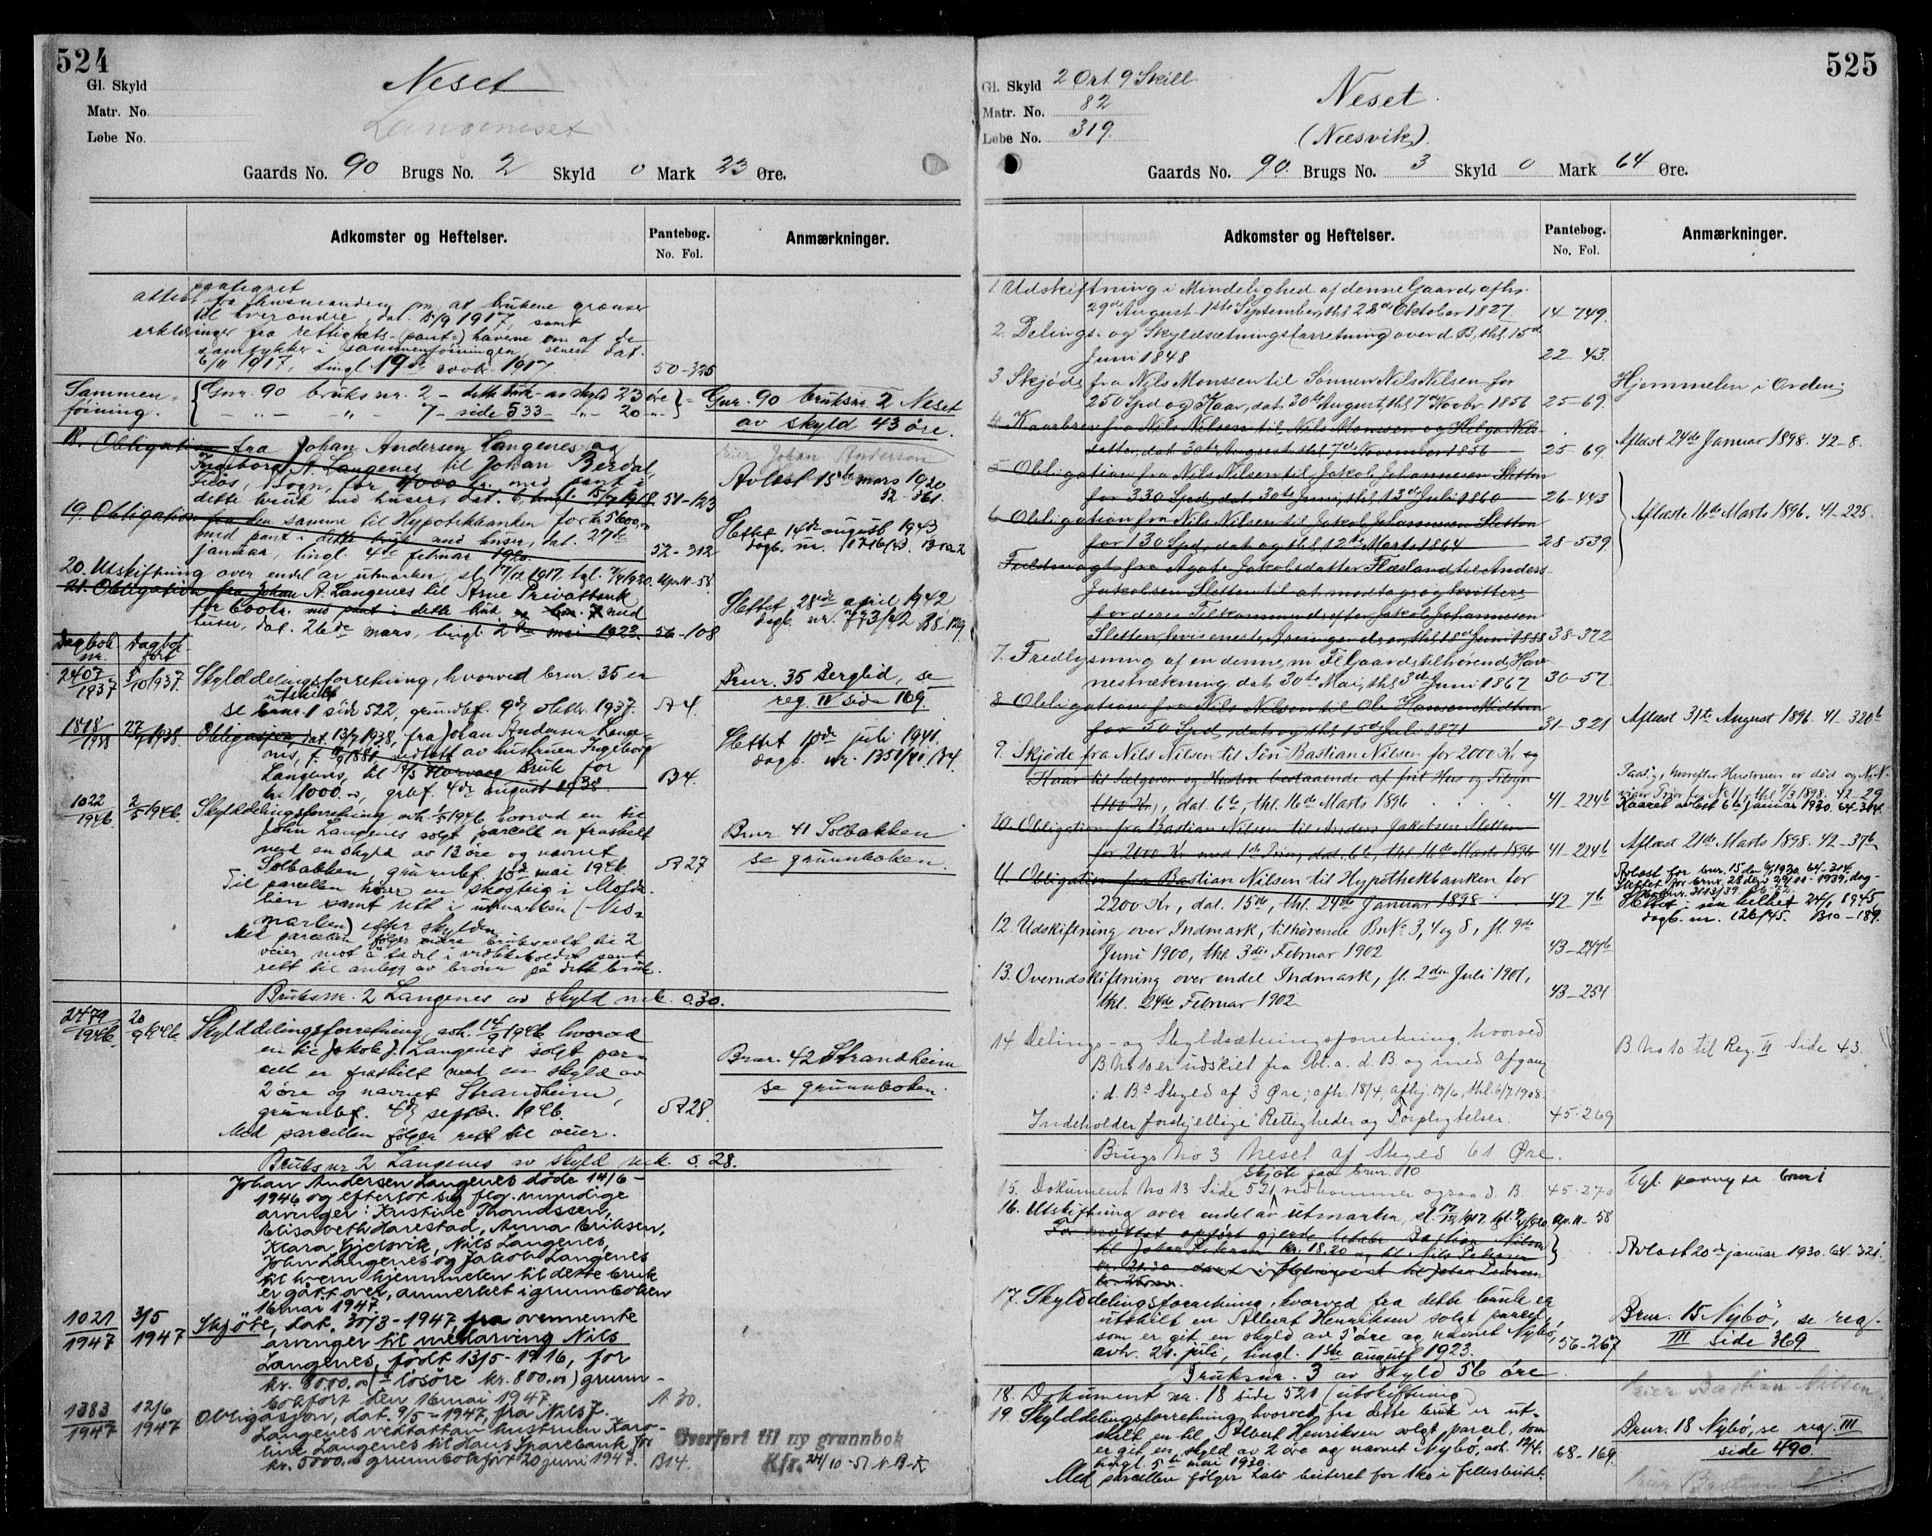 524
Gl. Skyld
Matr. No.
Løbe No.
Neset
Langeneset
Gaards No. 90 Brugs No. 2 Skyld 0 Mark 23 Øre.
Adkomster og Heftelser.
Pantebog.
No. Fol.
Anmærkninger.
paategnet
til hverandre, dat. 15/9 1917, samt
erklæringer fra rettighets- (pant-) havere om at de
samtykker i sammenføiningen, senest dat.
6/11 1917, tingl. 19de 1917. 50-325
Sammen- Gnr. 90 bruks nr. 2 - dette bruk av skyld 23 øre = Gnr. 90 bruksnr. 2 Neset
føining. 7 - side 533 20 av skyld 43 øre.
18. Obligation fra Johan Andersen Langenes og
Eier Johan Andersen
Ingeborg A. Langenes til Johan Berdal,
Avløst 15de mars 1920
for 4000 kr. med pant i
52-361.
dette bruk med huser, dat. 51-123
19. Obligation fra den samme til Hypotekbanken for kr. 5600,-
Slettet 14de august 1943
med pant i dette bruk med huser, dat. 27de
januar, tingl. 4de februar 1920. 52-312
20. Utskiftning over endel av utmarken, sl. 17/12 1917, tgl. 1920. 58
21. Obligation fra Johan A. Langenes til Arne Privatbank
Slettet 28de april 1942
for 600 kr. med pant i dette bruk med
huser, dat. 26de mars, tingl. 2den mai 1923. 56-108
Dagbok nr. Dagbok ført
2407/1937 5/10 1937. Skylddelingsforretning, hvorved brnr. 35 er
Brnr. 35 Berglid, se
utskilt
reg. IV side 169.
se brnr. 1 side 522, grundbf. 9de oktbr. 1937. A 4.
1818/1938 27/7 1938. Obligasjon, dat. 13/7 1938, fra Johan Andersen Lange-
Slettet 10de juli 1941.
nes, f. 1881, vedtatt av hustruen Ingeborg
dagb. nr. 1351/41 B4
Langenes, til A/S Bruk for
kr. 1000.00, grbf. 4de august 1938. B4.
1022/1946 2/5 1946. Skylddelingsforretning avh. 1/5 1946, hvorved en til
John Langenes solgt parcell er fraskilt
Brnr 41 Solbakken
med en skyld av 13 øre og navnet
se grunnboken.
Solbakken, grunnbf. 10de mai 1946. A 27
Til parcellen hører en skogteig i
lien samt rett i utmarken (Nes-
marken) efter skylden
Med parcellen følger videre bruksrett til 2
veier mot å ta del i vedlikeholdet samt
rett til anlegg av brønn på dette bruk.
Bruksnr. 2 Langenes av skyld mrk. 0.30.
2479/1946. 20/9 1946 Skylddelingsforretning, avh. 14/9 1946 hvorved
en til Jakob J. Langenes solgt par-
Brnr. 42 Strandheim
cell er fraskilt med en skyld av
se grunnboken.
2 øre og navnet Strandheim,
grunnbf. septbr. 1946. A 28
Med parcellen følger rett til veier.
Bruksnr. 2 Langenes av skyld mrk. 0.28.
Johan Andersen Langenes døde 14/6-
1946 og efterlot sig flg. myndige
arvinger: Kristine Thomassen,
Elisabeth Harestad, Anna Eriksen,
Klara Gjelsvik, Nils Langenes,
John Langenes og Jakob Langenes
til hvem hjemmelen til dette bruk
er gått over, anmerket i grunnboken
16 mai 1947.
1021/1947 3/5 1947 Skjöte, dat. 30/3-1947, fra ovennevnte
arvinger til medarving Nils
Langenes, født 13/5-1916, for
kr. 8000.00 (løsøre kr. 800.00) grunn-
bokført den 16 mai 1947. A 30.
1383/1947 12/6 1947 Obligasjon, dat. 9/5-1947, fra Nils J.
Langenes vedtatt av hustruen Karo-
line Langenes til Haus Sparebank for
kr. 5000.00 grunnbokført 20 juni 1947. B14.
Overført til ny grunnbok
Kfr. 24/10-51
525
Gl. Skyld 2 Ort 9 Skill
Matr. No. 82
Løbe No. 319.
Neset.
(Næsvik).
Gaards No. 90. Brugs No. 3 Skyld 0 Mark 64 Øre.
Adkomster og Heftelser.
Pantebog.
No. Fol.
Anmærkninger.
1 Udskiftning i Mindelighed af denne Gaard, afh.
29de August-1ste September, thl 28de Oktober 1827 14-749.
2. Delings- og Skyldsætningsforretning over d. B, thl. 15de
Juni 1848 22-43.
3 Skjøde fra Nils Monssen til Sønnen Nils Nilsen for
Hjemmelen i Orden.
250 Spd og Kaar, dat. 30te August, thl. 7de Novbr. 1856 25-69.
4 Kaarbrev fra Nils Nilsen til Nils Monssen og Helga Nils-
Aflæst 24de Januar 1898. 42-8.
datter, dat. 30te August thl 7de November 1856 25-69
5 Obligation fra Nils Nilsen til Jakob Johannesen Sletten
for 330 Spd, dat 30te Juni, thl. 13de Juli 1860 26-443
Aflæste 16de Marts 1896. 41-225.
6 Obligation fra Nils Nilsen til Jakob Johannesen Sletten
for 130 Spd, dat og thl 12te Marts 1864 28-539
Fuldmagt fra Agate Jakobsdatter Flæsland til Anders
Jakobsen Sletten til at modtage og kvittere
for deres Tilkommende efter Jakob Johannesen
Sletten, hvis eneste Arvinger de er, thl. 18de Juni 1888 38-372
7. Fredlysning af en denne m. Fl. Gaarde tilhørende Hav-
nestrækning, dat 30te Mai, thl. 3de Juni 1867 30-57.
8 Obligation fra Nils Nilsen til Ole Hansen
for 50 Spd, dat og thl 15de Juli 1871 31-321
Aflæst 31te August 1896. 41-320b
9. Skjøde fra Nils Nilsen til Sön Bastian Nilsen for 2000 Kr. og
Kaar til Sælgeren og Hustru bestaaende af frit Hus og Tilsyn
dat. 6te, thl. 16de Marts 1896 41-224b
Kaaret avløst 6te januar 1930. 64-304.
10. Obligation fra Bastian Nilsen til Anders Jakobsen Sletten
for 2000 Kr med 1ste Prior., dat. 6te, thl. 16de Marts 1896 41-224b
Aflæst 21de Marts 1898. 42-37b
11. Obligation fra Bastian Nilsen til Hypothekbanken for
2200 Kr, dat. 15de, thl. 24de Januar 1898 42-7b
Slettet i sin helhet 24/2 1945,
dagb. nr. 126/45. B10-189.
12. Udskiftning over Indmark, tilhørende BrNo. 3, 4 og 8, sl. 9de
Juni 1900, thl. 3die Februar 1902 43-247b
13. Overudskiftning over endel Indmark, sl. 2den Juli 1901,
thl. 24de Februar 1902 43-254
14 Delings- og Skyldsætningsforretning, hvorved
B.No 10 er udskilt fra bl.a. d. B og med Afgang
B.No 10 til Reg. II Side 43.
i d. B's Skyld af 3 Øre; afh. 18/4, afhj. 19/6, thl. 6/7 1908.
Indeholder forskjellige Rettigheder og Forpligtelser. 45-269
Brugs No 3 Neset af Skyld 61 Øre.
Skjøte paa brnr. 10
15. Dokument No 13 Side 521 vedkommer ogsaa d. B. 45-270
16. Utskiftning over endel av utmarken, sl. 17/12 1917, tgl. 1920. 58
Avløst 20de januar 1930. 64-321.
17. Skylddelingsforretning, hvorved fra dette bruk er
utskilt en Albert Henriksen solgt parcel,
Brnr. 15 Nybö, se reg.
som er git en skyld av 5 øre og navnet Nybø,
III side 369
avh. 21. juli, tingl. 1ste august 1923. 56-267
Bruksnr. 3 av skyld 56 öre
18. Dokument nr. 18 side 521 (utskiftning)
Eier Bastian Nilsen
19. Skylddelingsforretning, hvorved fra dette bruk er ut-
skilt en til Albert Henriksen solgt parcel, som
Brnr. 18 Nybø, se reg. III
er git en skyld av 2 øre og navnet Nybø, avh. 19/4,
side 490.
tingl. 5te mai 1930. 68-169.
Med parcellen følger beiteret for 1 ko i fellesbeitet.